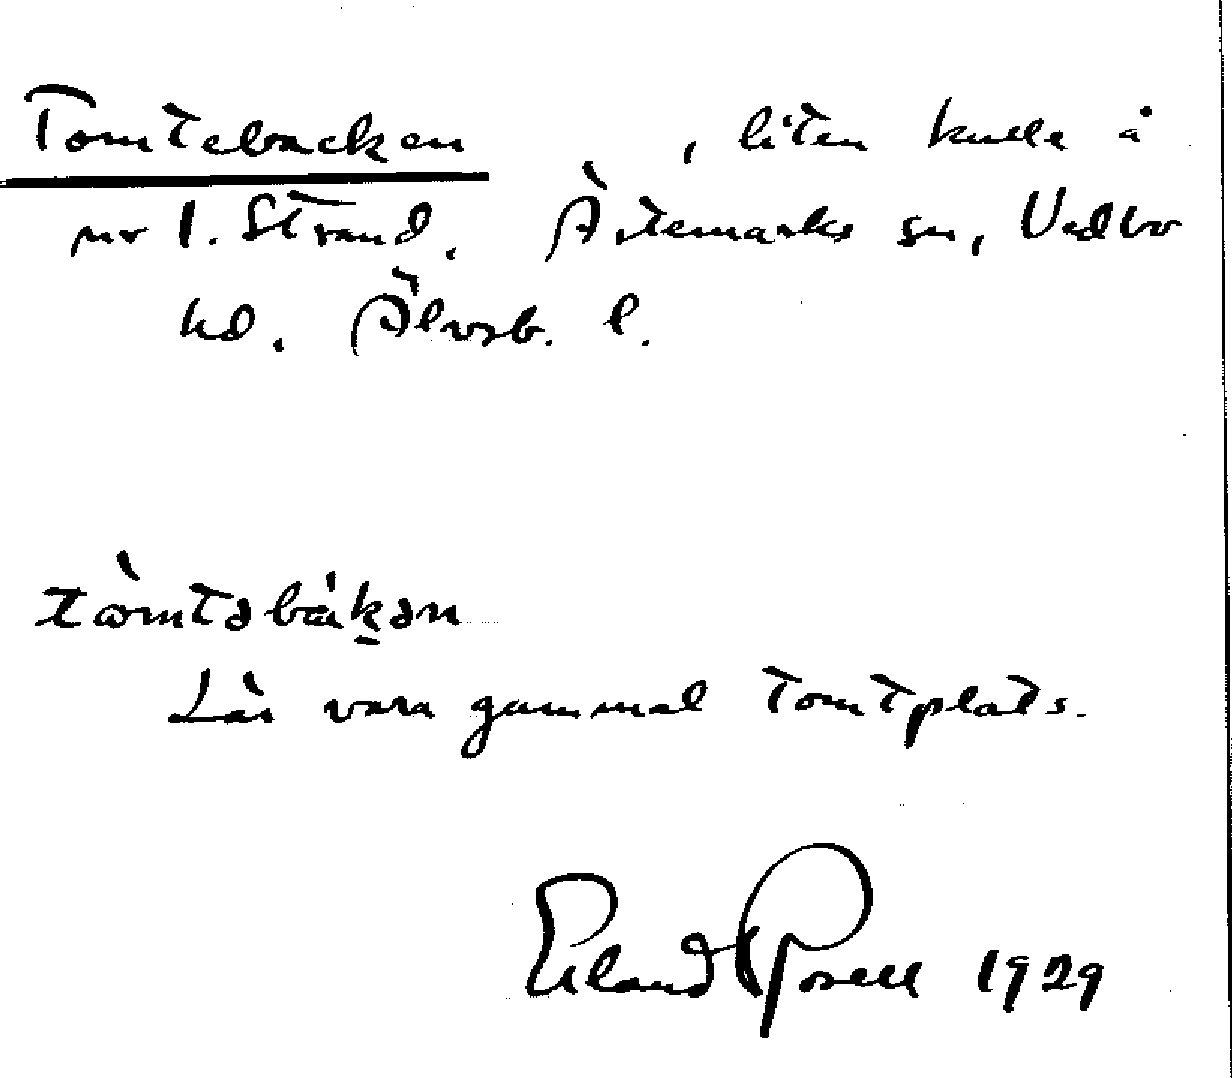 Tomtebacken , liten kulle å
nr 1. Strand. Ärtemarks sn, Vedbo
hd. Älvsb. l.
tòmtəbákən
Lär vara gammal tomtplats.
Erland Rosell 1929